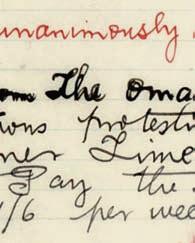 unanimously
The Oma
ions protesti
ner Lime
Pay the
1/6 per wee